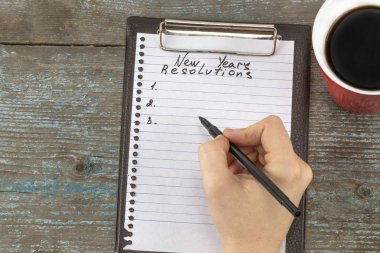 New Years
Resolutions
1.
2.
3.